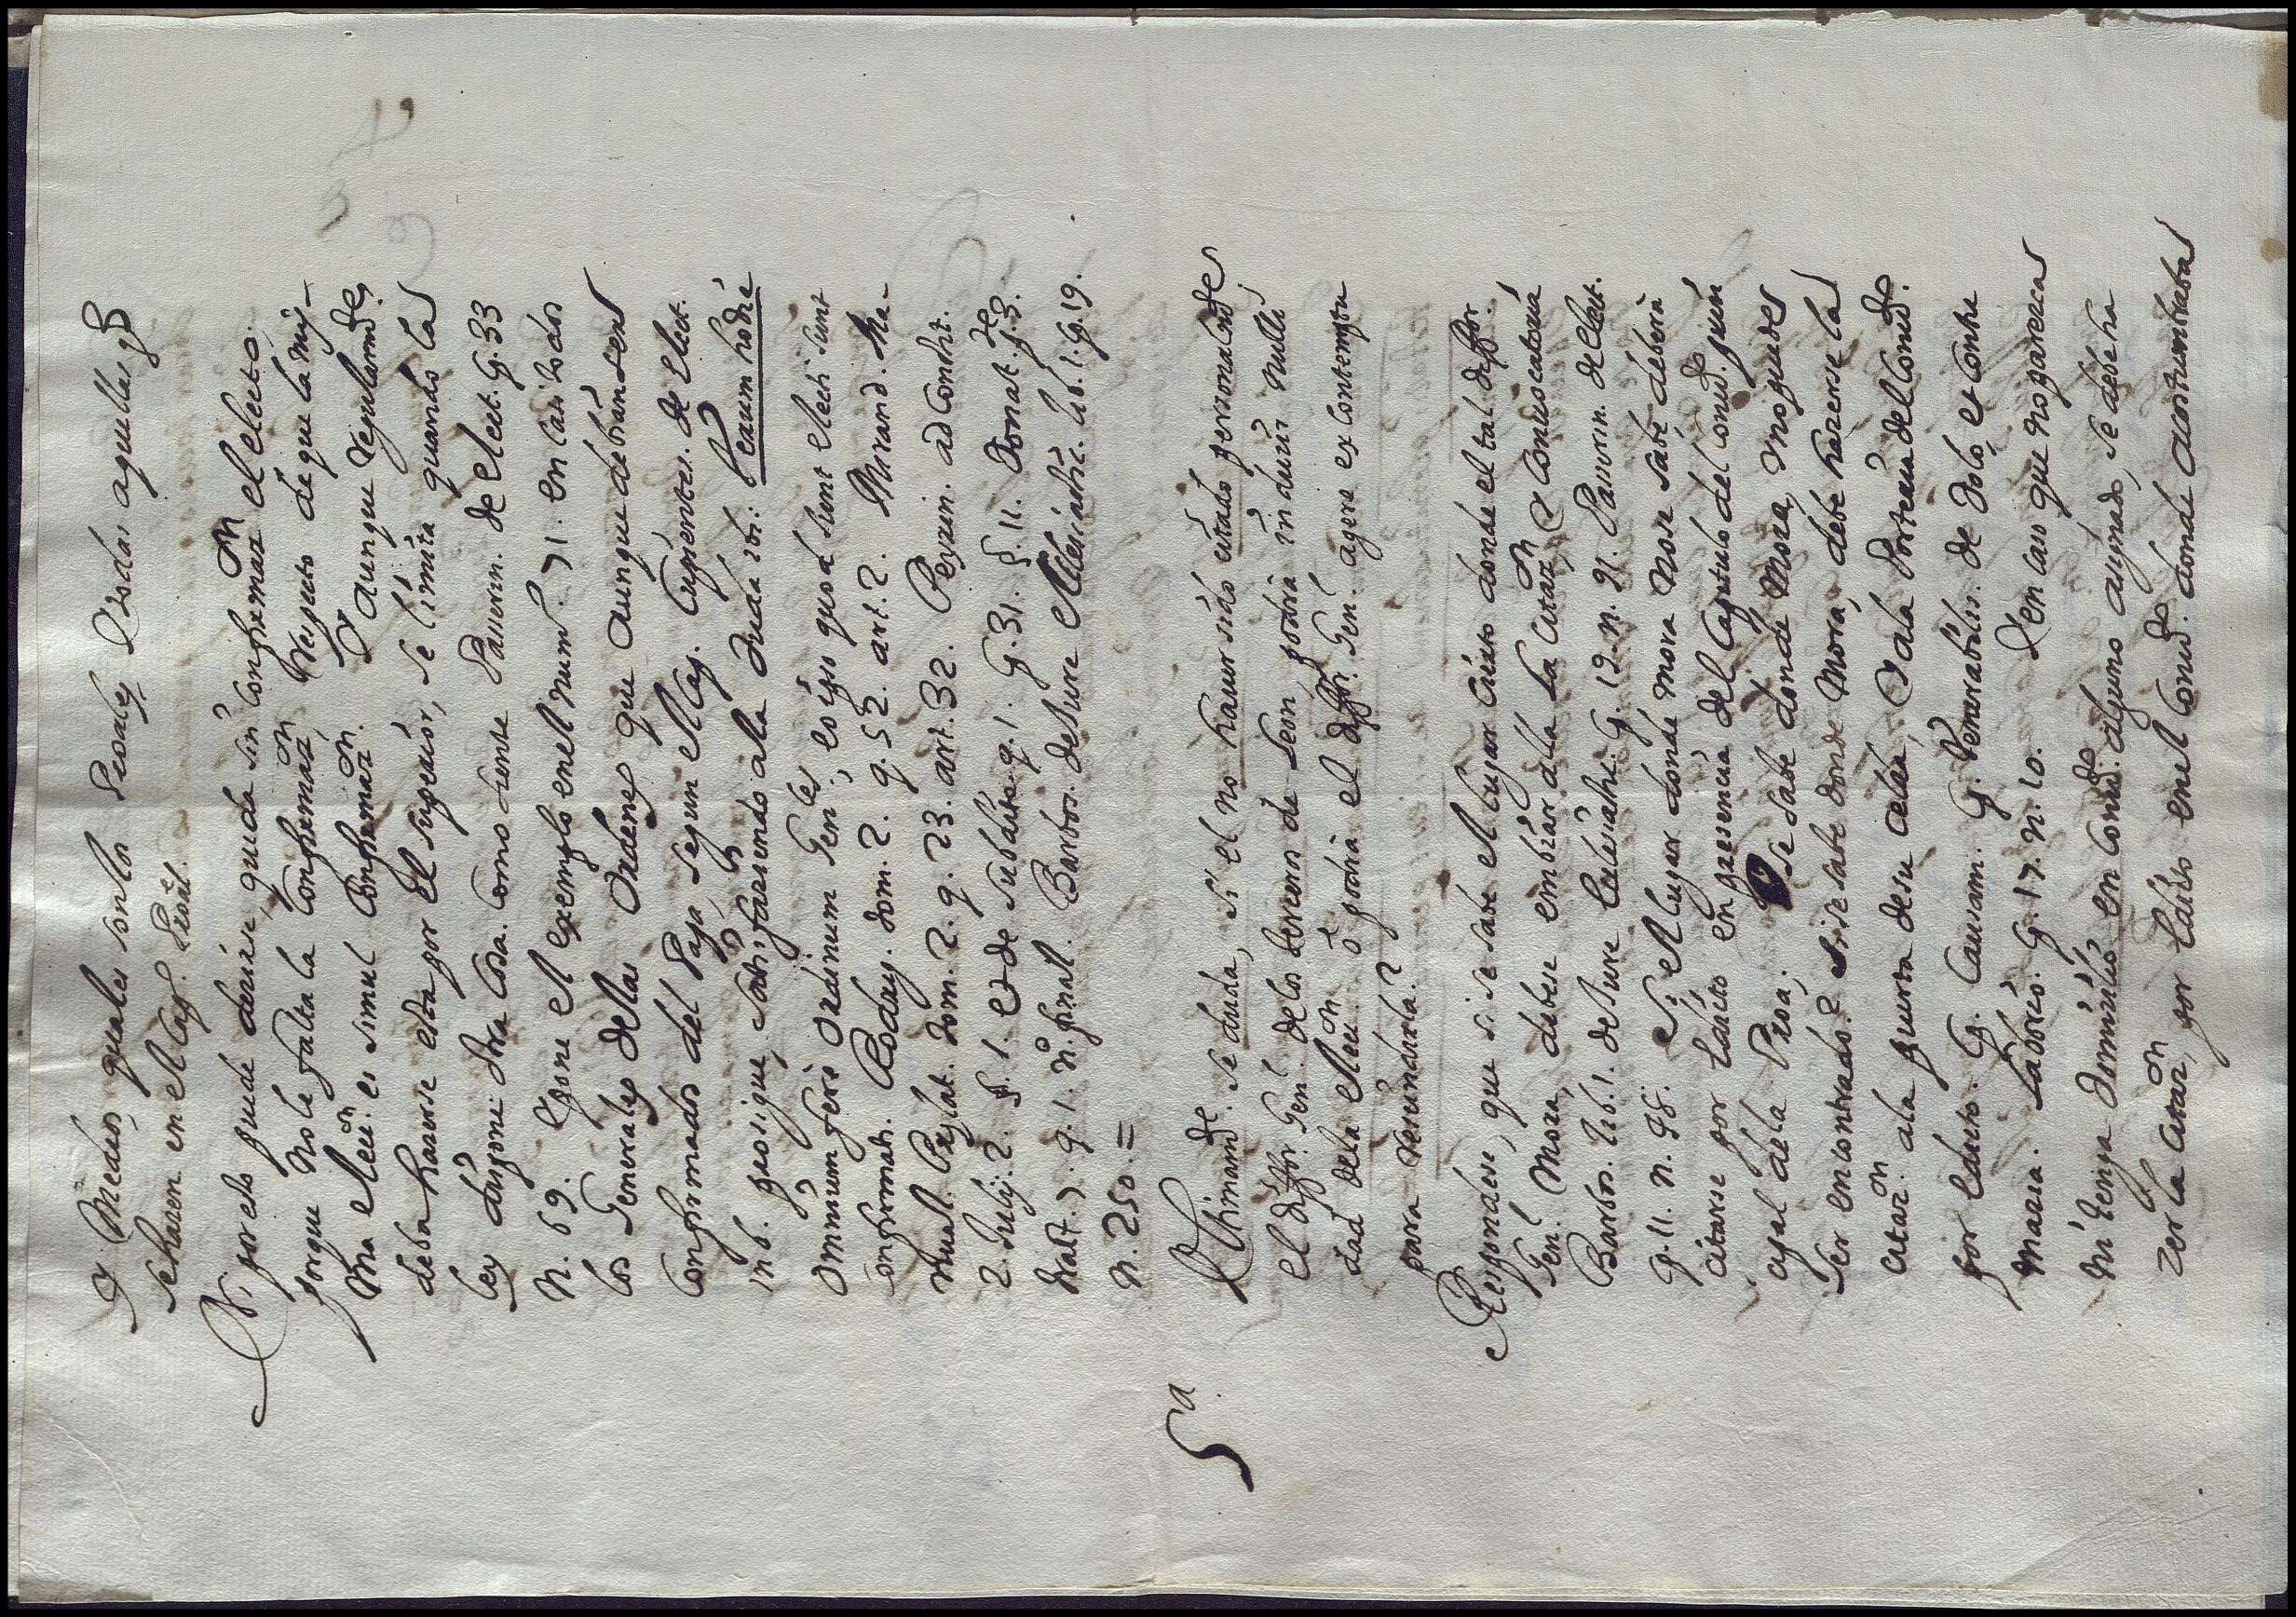 y Medios, quales son los Prales, y todas aquellas q̃
se hazen en el Cap. Proal.
Ni por esto puede dezirse, queda sin confirmaz.on el electo.
porque no le falta la confirmaz.on respecto de que la mis-
ma elecc.on es simul confirmaz.on. Y aunque regularm.de
deba hacerse esta por el superior, se limita quando la
ley dispone otra cosa. Como siente Passerin. de elect. C. 33
n. 69. y pone el exemplo en el num. 71. en casi todos
los Generales de las Ordenes que aunque debian ser
confirmados del Papa, segun el Cap. Cupientes. de elect.
in 6. prosigue, satisfaziendo a la duda ibi: Verum hodie
omnium fere Ordinum Gen.les, eo ipso quod sunt electi sunt
confirmati. Rodrig. tom. 2. q. 52. art. 2. Mirand. Ma-
nual. Prelat. tom. 2. q. 23. art. 32. Peyrin. ad Constit.
2. Julij. 2. §. 1. et de subdito q. 1. C. 31. §. 11. Donat. p. 3.
tract. 7. q. 1. n. final. Barbos. de Jure Eclesiastic. lib. 1. C. 19.
n. 250. =
5.a
Ultimam.de se duda, si el no haver sido citado personalm.de
el Diffor. Gen. de los terceros de Leon, podria inducir nuli-
dad de la elecc.on o podria el Diffor. Gen. agere ex contemptu
para rescindirla?
Respondese, que si se sabe el lugar cierto donde el tal Diffor.
Gen. Mora, debese embiar alla la Citaz.on, y Convocatoria
Barbos. lib. 1. de Jure Eclesiastic. C. 19. n. 91. Passerin. de elect.
C. 11. n. 98. Si el lugar donde mora no se sabe, debera
citarse por Edicto en presencia del Capitulo del Conv.do prin
cipal de la Proa. O se sabe donde Mora, mo puede
ser encontrado? si se sabe donde Mora, debe hazerse la
citaz.on a la puerta de su celda, y a la Porteria del Conv.do.
por edicto. Cg. Causam. C. Venerabilis. de dolo et contu
macia. Laborio. C. 17. n. 10. Y en caso que no parezca
ni tenga domicilio en Conv.do alguno asignado, se debe ha
zer la Citaz.on, por Edicto en el Conv.do donde acostumbraba